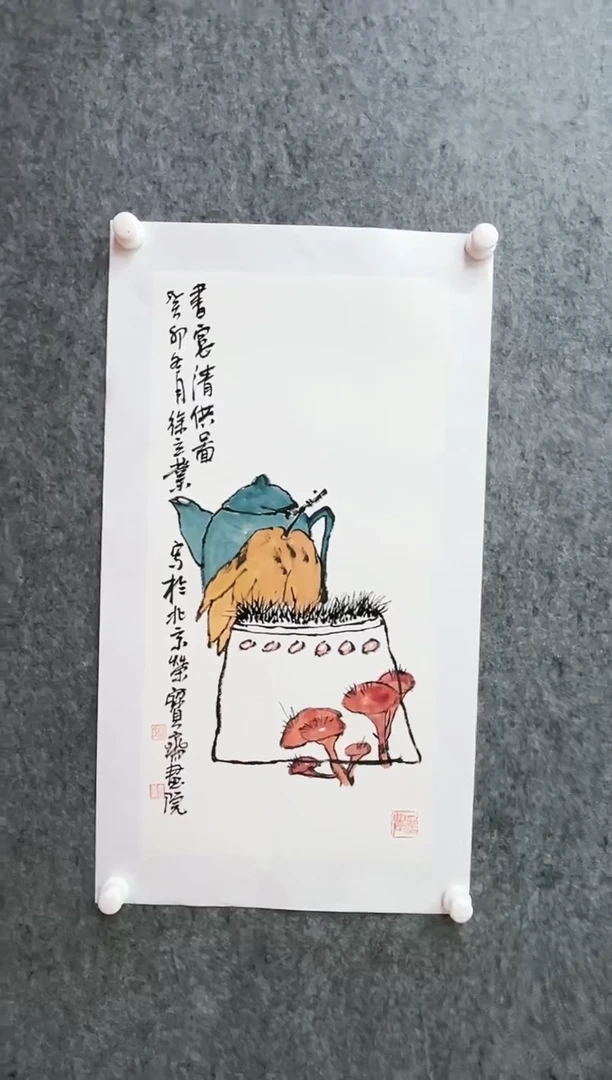 書窓清供圖
癸卯冬月徐立業寫於北京榮寶齋畫院